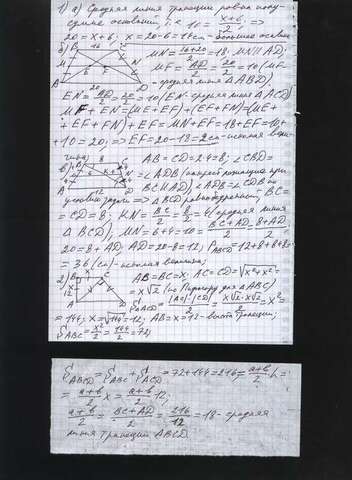 1) а) Средняя линия трапеции равна полу-
сумме оснований, т.к 10 = x+6/2 =>
20 = x+6; x = 20-6 = 14см - большее основ
б) B 16 C MN = 16+20/2 = 18. MN∥AD;
M E F N MF = AD/2 = 20/2 = 10 (MF
A 20 D - средняя линия ΔABD),
EN = AD/2 = 20/2 = 10 (EN - средняя линия ΔACD)
MF + EN = (ME + EF) + (EF + FN) = (ME +
+ EF + FN) + EF = MN + EF = 18 + EF = 10 +
+ 10 = 20; => EF = 20 - 18 = 2см - искомая вели-
чина.
в) B 8 C AB = CD = 2·4 = 8; ∠CBD =
= ∠ADB (накрест лежащие при
A 12 D BC∥AD), ∠ADB = ∠CDB по
условию задачи => ΔBCD равнобедренный, BC =
= CD = 8; KN = BC/2 = 8/2 = 4 (средняя линия
ΔBCD), MN = 6+4 = 10 = BC+AD/2 = 8+AD/2
20 = 8 + AD; AD = 20-8 = 12; P ABCD = 12+8+8+8=
= 36 (см) - искомая величина;
2) B x C AB = BC = x; AC = CD = √x²+x² =
x 12 = x√2 (по Пифагору для ΔABC)
A D S ACD = |AC|·|CD|/2 = x√2·x√2/2 = x² =
= 144; x = √144 = 12; AB = x = 12 - высота трапеции;
S ABC = x²/2 = 144/2 = 72;
S ABCD = S ABC + S ACD = 72+144 = 216 = a+b/2 h =
= a+b/2 x = a+b/2 12;
a+b/2 = BC+AD/2 = 216/12 = 18 - средняя
линия трапеции ABCD.